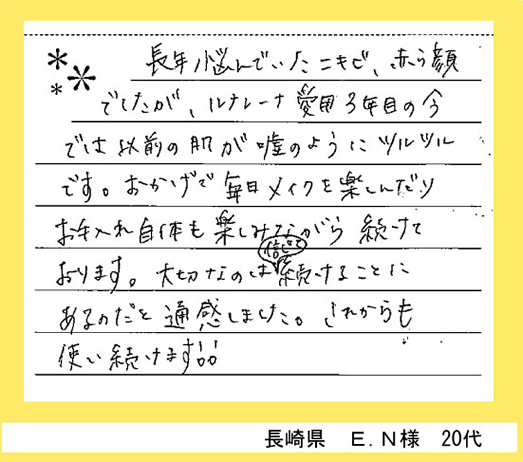 長年悩んでいたニキビ、赤ら顔
でしたが、ルナレーナ愛用3年目の今
では以前の肌が嘘のようにツルツル
です。おかげで毎日メイクを楽しんだり
お手入れ自体も楽しみながら続けて
おります。大切なのは信じて続けることに
あるのだと通感しました。これからも
使い続けます!!
長崎県 E.N様 20代